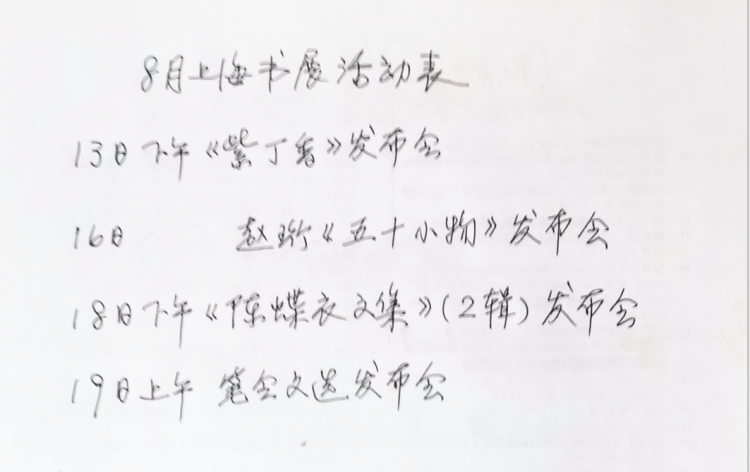 8月上海书展活动表
13日下午《紫丁香》发布会
16日 赵珩《五十小物》发布会
18日下午《陈蝶衣文集》(2辑)发布会
19日上午 笔会文选发布会